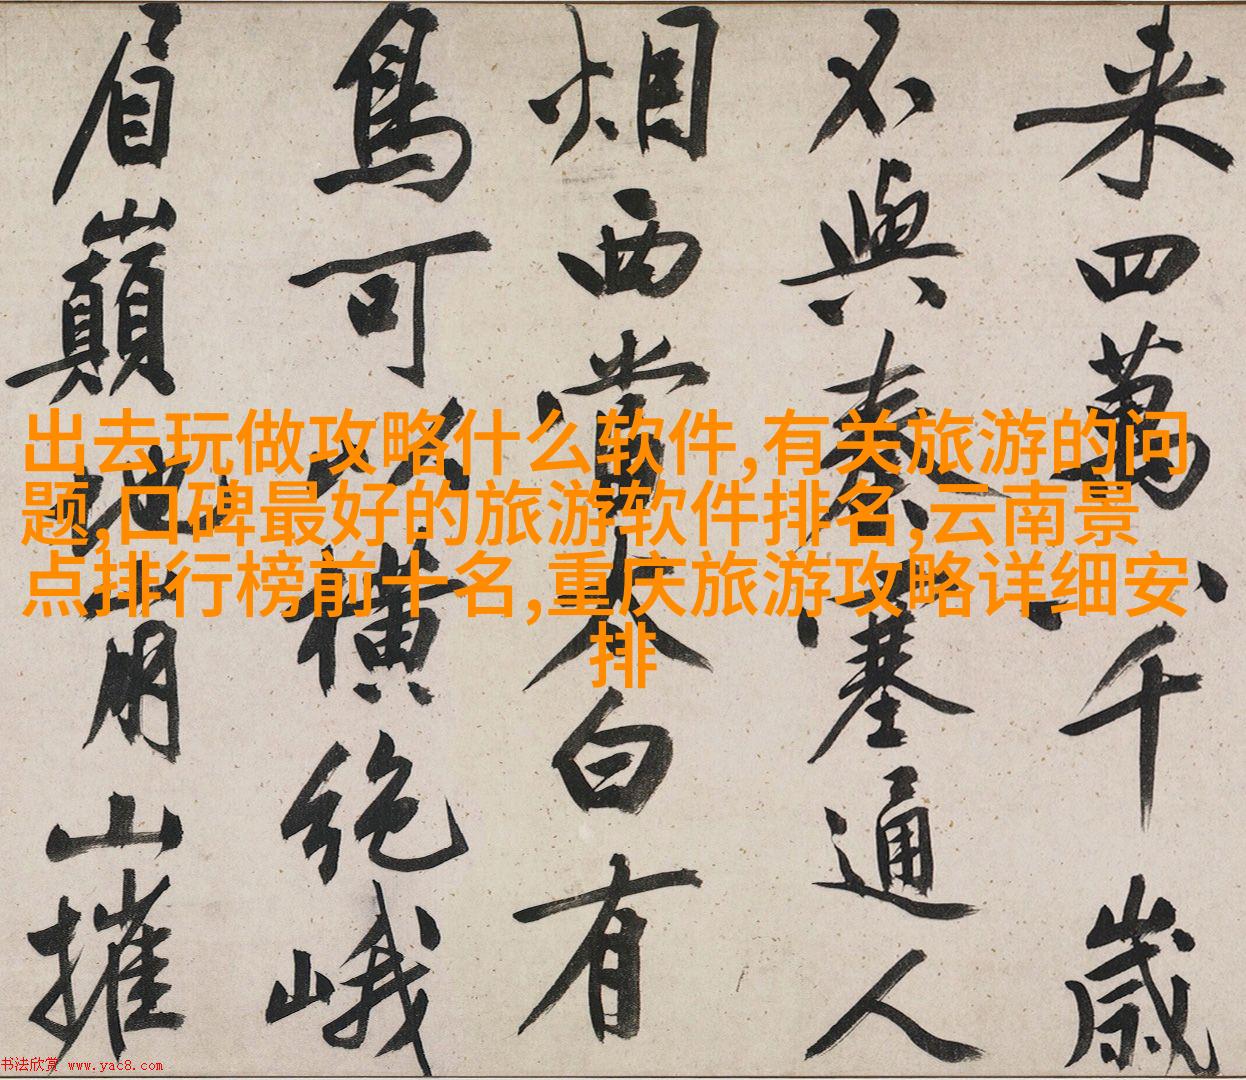 来四萬八千歲
不與秦塞通人
烟西當太白有
鳥可以橫絕峨
眉巔地崩山摧
出去玩做攻略什么软件,有关旅游的问
题,口碑最好的旅游软件排名,云南景
点排行榜前十名,重庆旅游攻略详细安
排
书法欣赏 www.yac8.com